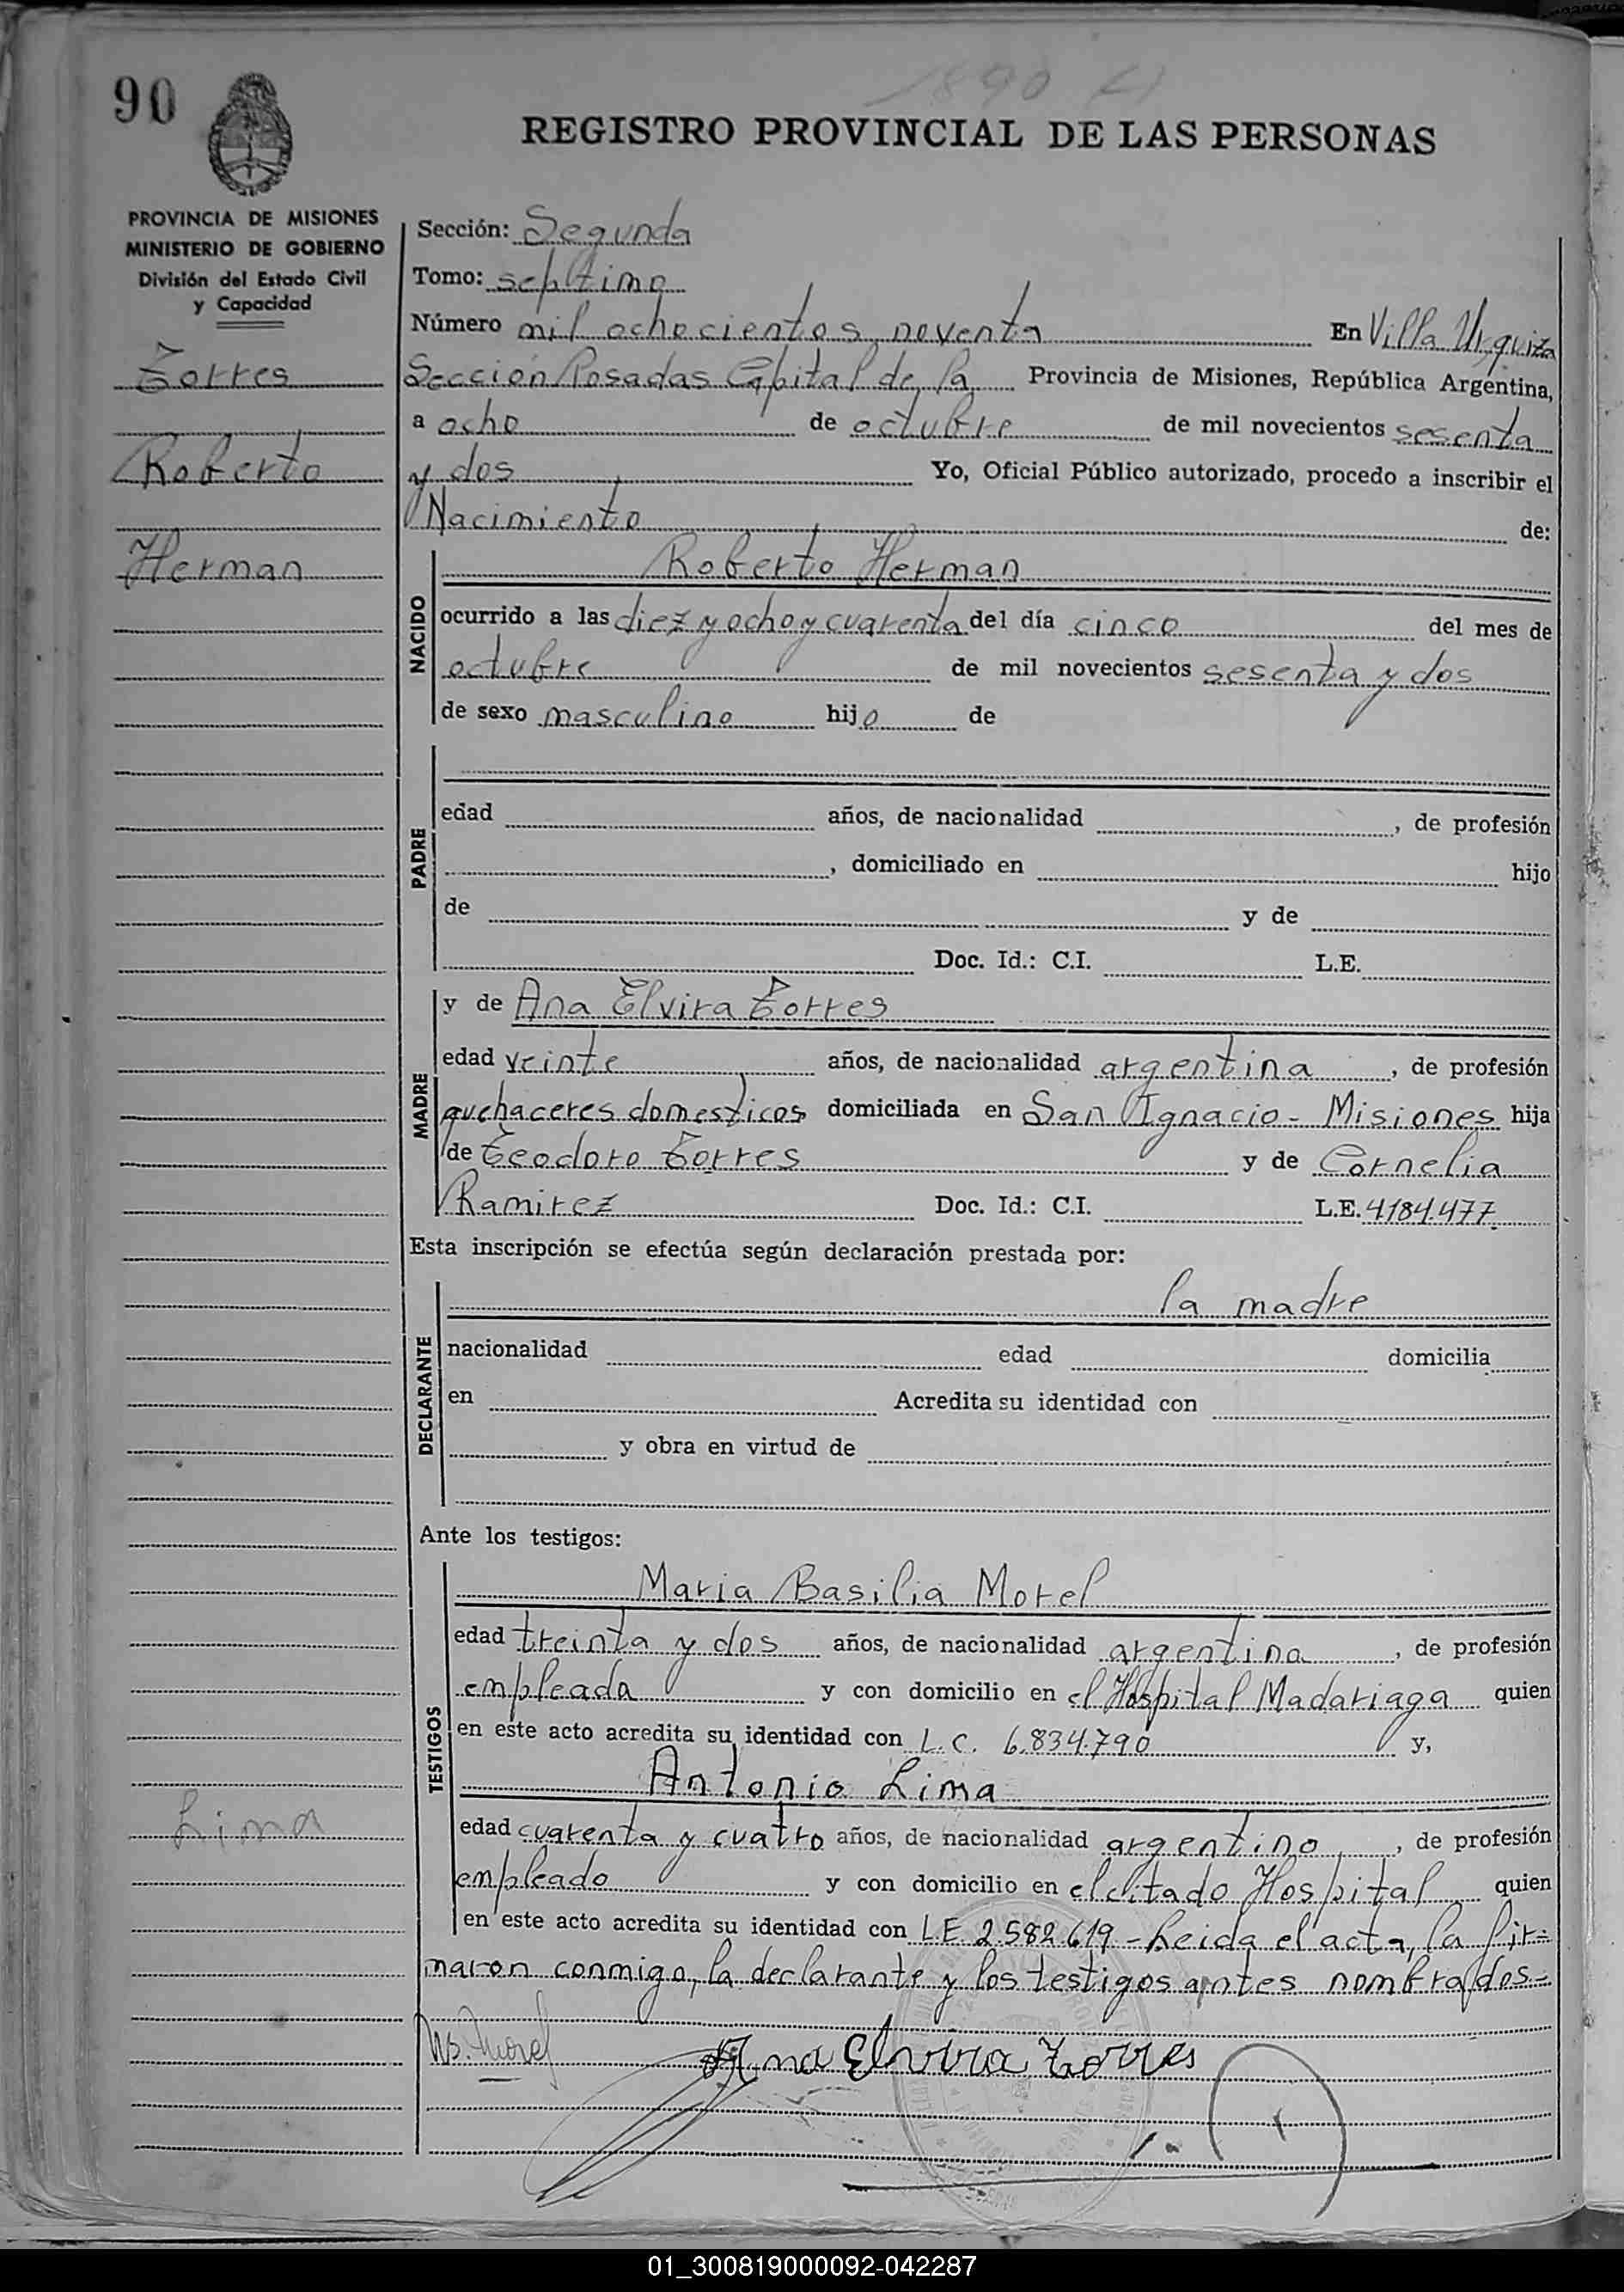 90
1890
REGISTRO PROVINCIAL DE LAS PERSONAS
PROVINCIA DE MISIONES
MINISTERIO DE GOBIERNO
División del Estado Civil
y Capacidad
Torres
Roberto
Herman
Lima
Sección: Segunda
Tomo: septimo
Número mil ochocientos noventa En Villa Urquiza
Sección Posadas Capital de la Provincia de Misiones, República Argentina,
a ocho de octubre de mil novecientos sesenta
y dos Yo, Oficial Público autorizado, procedo a inscribir el
Nacimiento de:
NACIDO
Roberto Herman
ocurrido a las diez y ocho y cuarenta del día cinco del mes de
octubre de mil novecientos sesenta y dos
de sexo masculino hijo de
PADRE
edad años, de nacionalidad , de profesión
, domiciliado en hijo
de y de
Doc. Id.: C.I. L.E.
MADRE
y de Ana Elvira Torres
edad veinte años, de nacionalidad argentina , de profesión
quehaceres domesticos domiciliada en San Ignacio - Misiones hija
de Teodoro Torres y de Cornelia
Ramirez Doc. Id.: C.I. L.E. 4184.477
Esta inscripción se efectúa según declaración prestada por:
DECLARANTE
la madre
nacionalidad edad domicilia
en Acredita su identidad con
y obra en virtud de
Ante los testigos:
TESTIGOS
Maria Basilia Morel
edad treinta y dos años, de nacionalidad argentina , de profesión
empleada y con domicilio en el Hospital Madariaga quien
en este acto acredita su identidad con L.C. 6.834.790 y,
Antonio Lima
edad cuarenta y cuatro años, de nacionalidad argentino , de profesión
empleado y con domicilio en el citado Hospital quien
en este acto acredita su identidad con LE 2.582.619 - Leida el acta, la fir=
maron conmigo, la declarante y los testigos antes nombrados=
Morel
Ana Elvira Torres
01_300819000092-042287